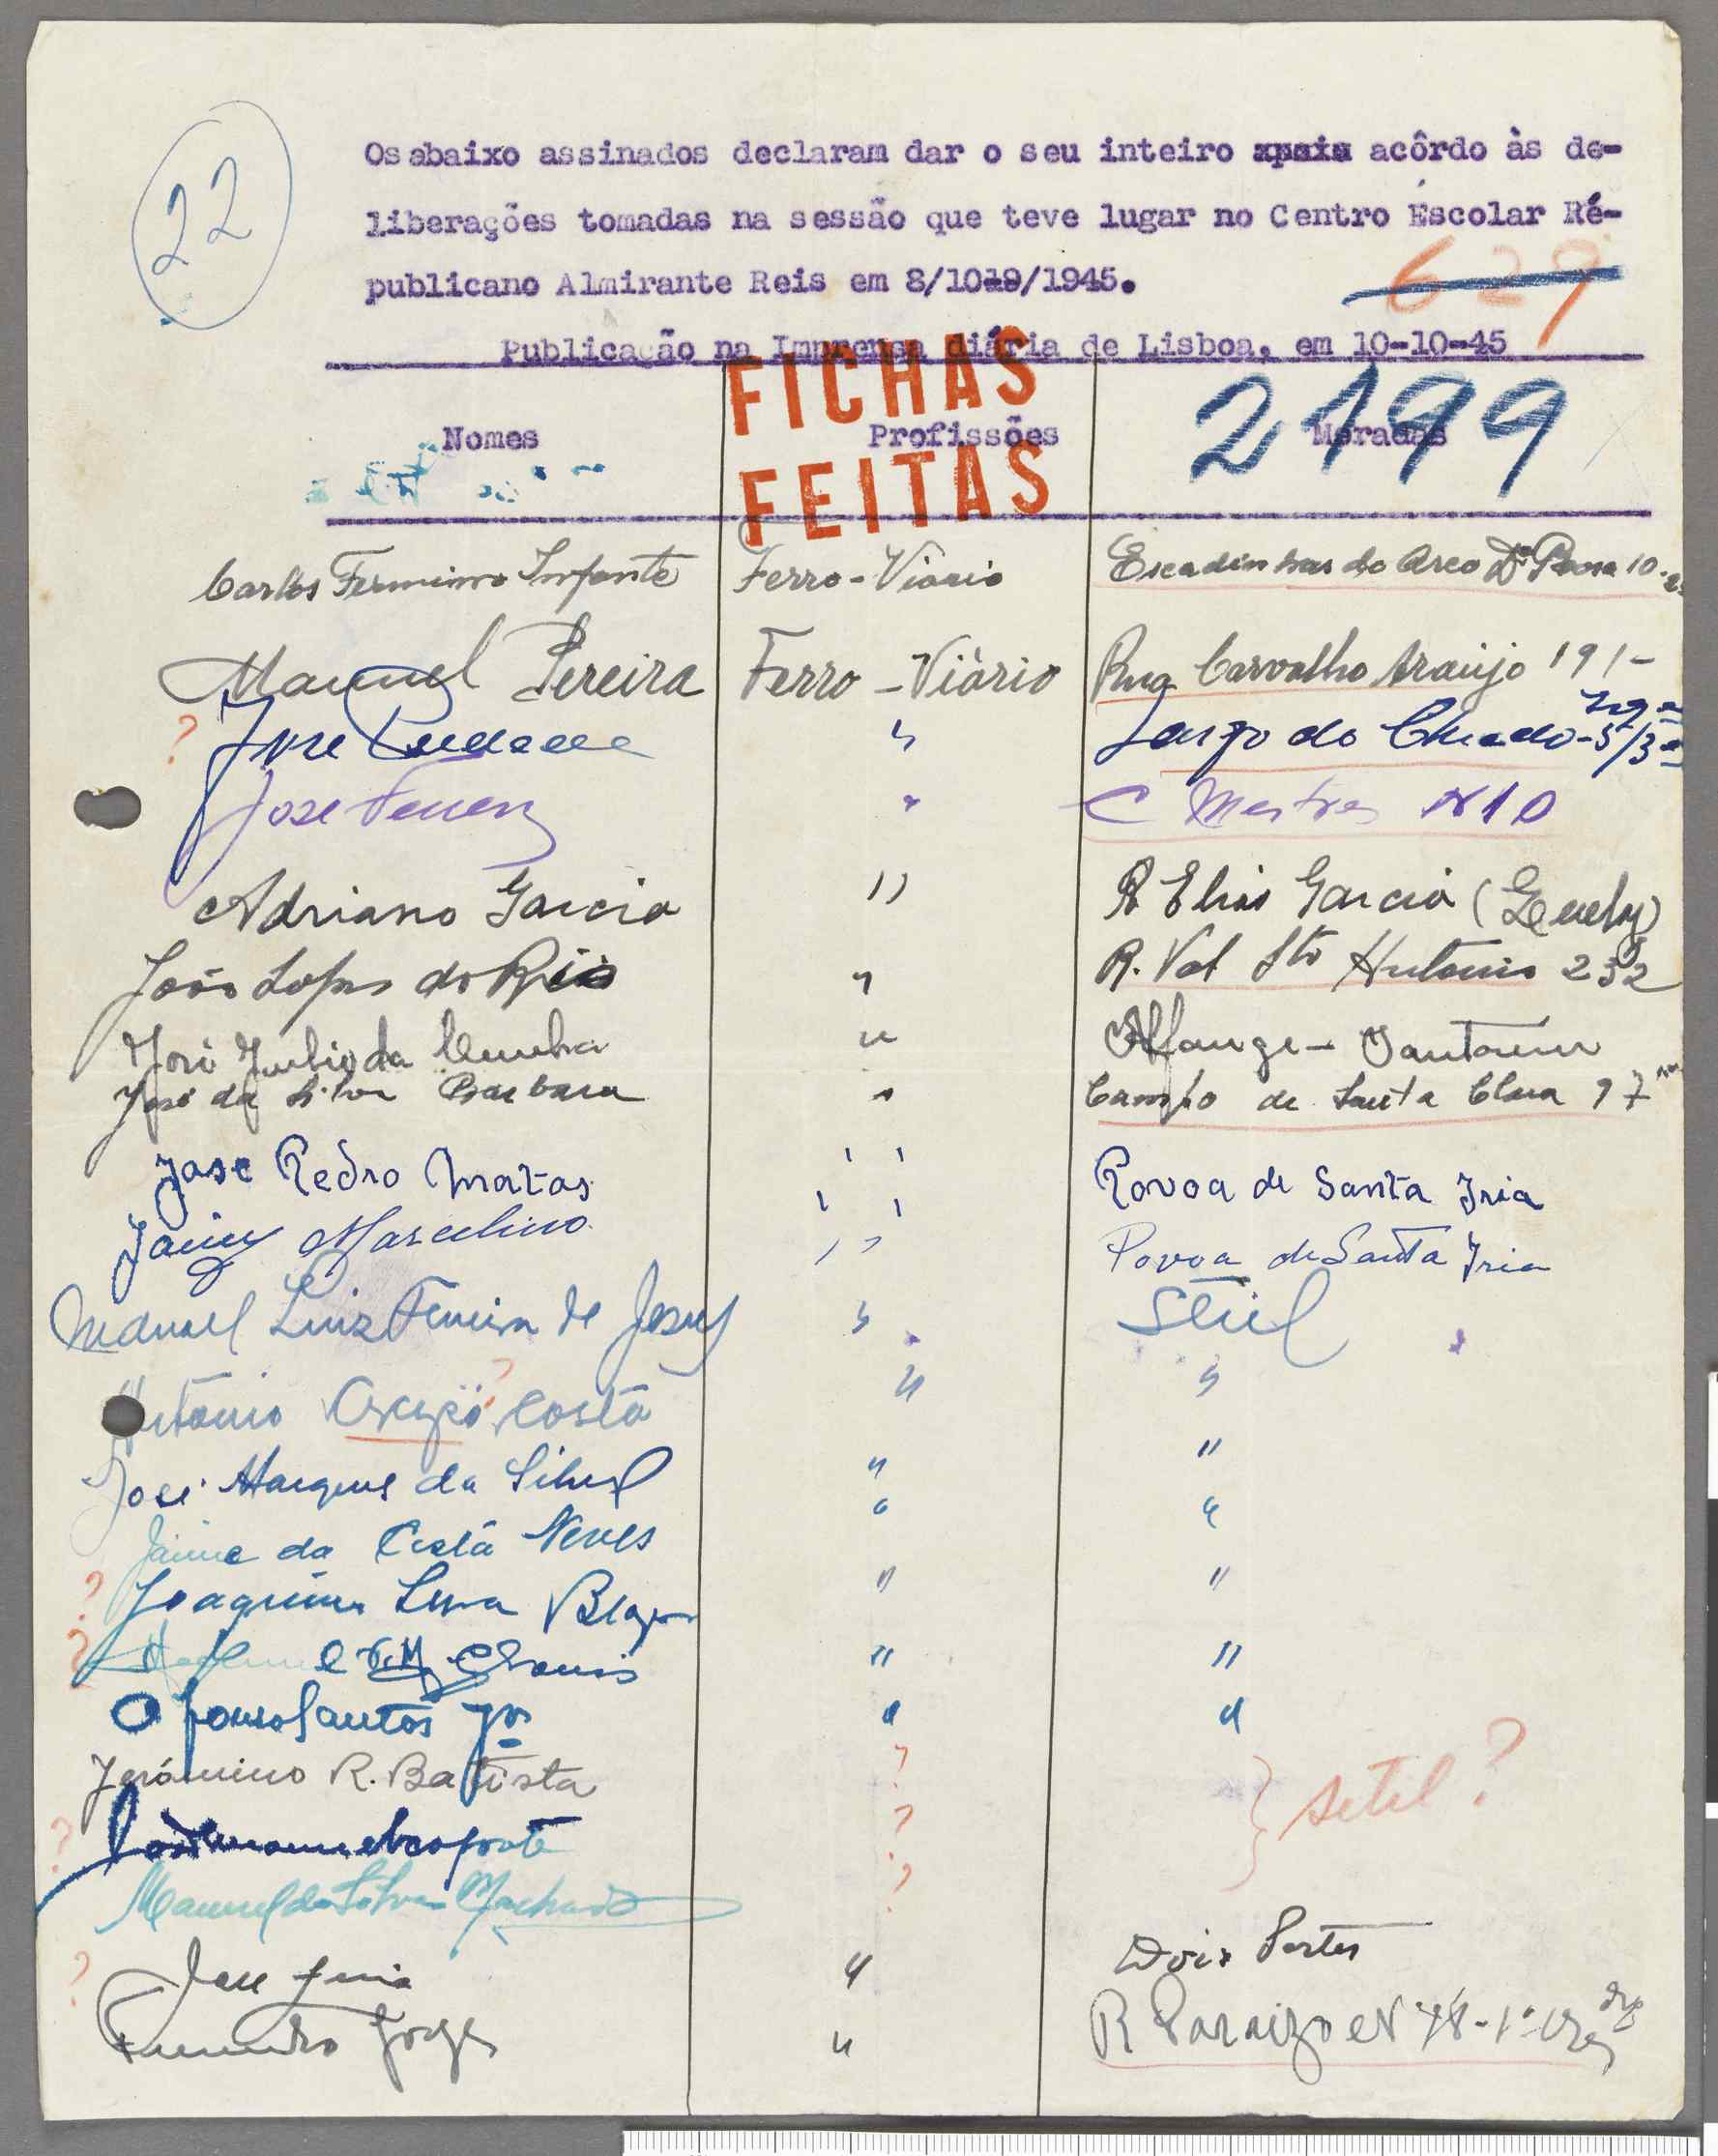 22
Os abaixo assinados declaram dar o seu inteiro apoio acôrdo às de-
liberações tomadas na sessão que teve lugar no Centro Éscolar Ré-
publicano Almirante Reis em 8/1019/1945.
629
Publicação na Imprensa diária de Lisboa, em 10-10-45
FICHAS
FEITAS
2199
Nomes Profissões Moradas
Carlos Fermimo Infante Ferro-Viario Escadinhas do Arco Dª Rosa 10
Manuel Pereira Ferro-Viário Rua Carvalho Araújo 191-
? José " Largo do Chiado-5/3º
José " C Mestres Nº 10
Adriano Garcia " R Elias Garcia
João Lopes do Rio " R. Val Stº Antonio 232
José Julio da Cunha " Alfange - Santarem
José da Silva Barbara " Campo de Santa Clara 97
José Pedro Matos " Povoa de Santa Iria
Jaime Marcelino " Povoa de Santa Iria
Manuel Luiz Ferreira de Jesus " Setil
?
António Costa " "
José Marques da Silva " "
Jaime da Costa Neves " "
? Joaquim " "
? " "
Afonso Santos Jor " "
Jerónimo R. Batista ? } setil?
? ?
Manuel da Silva Machado ?
? José " Dois Portos
Jorge " R Paraizo Nº 48-1º